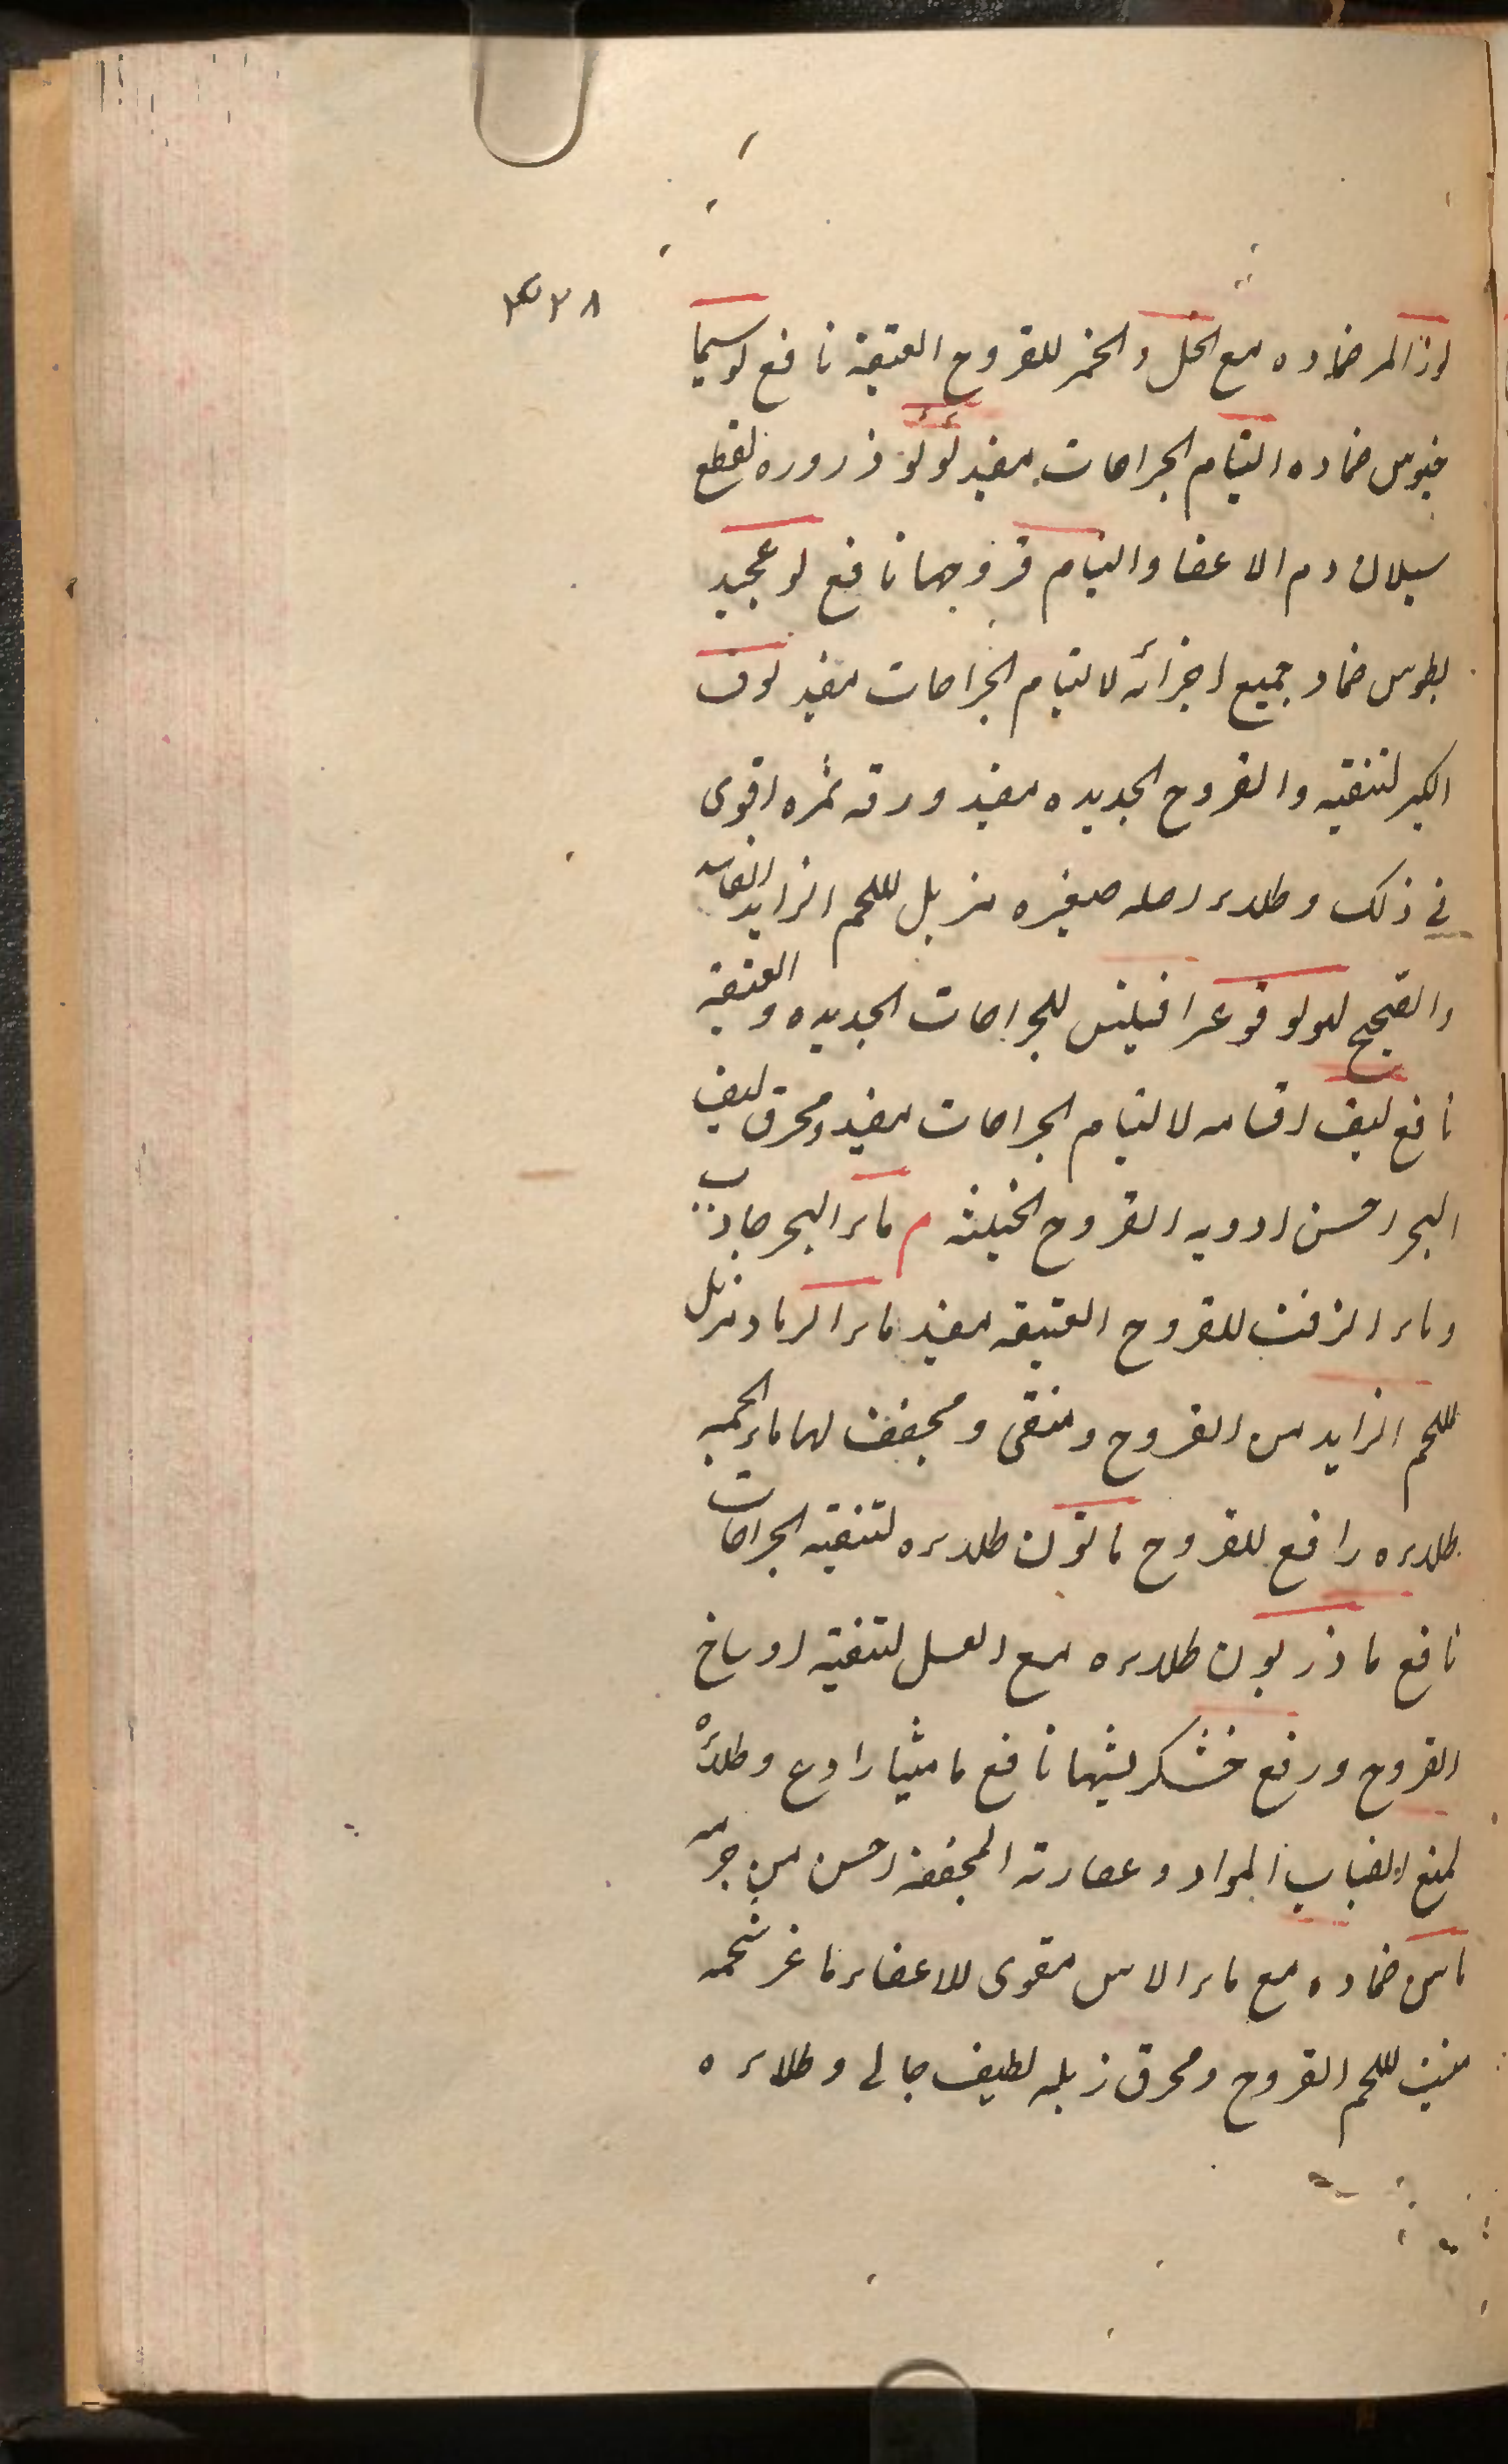 ٣٢٨
لوز المر ضماده مع الخل والخمر للقروح العتيقة نافع لوسيما
خيوس ضماده التيام الجراحات مفيد لؤلؤ ذروره لقطع
سيلان دم الاعضا والتيام قروحها نافع لو عجيد
لطوس ضماد جميع اجزائه لالتيام الجراحات مفيد لوف
الكبر لتنقيه والقروح الجديده مفيد ورقه ثمره اقوى
في ذلك وطلاء اصله صغيره مزيل للحم الزايد الفاسد
والقيح لولوفوعرافيلس للجراحات الجديده و العتيقة
نافع ليف اقسامه لالتيام الجراحات مفيد ومحرق ليف
البحر احسن ادويه القروح الخبيثه م ماء البحر جاذب
وماء الزفت للقروح العتيقه مفيد ماء الرماد مزيل
للحم الزايد من القروح ومنقى ومجفف لها ماء الجمه
طلاءه رافع للقروح مانون طلاءه لتنقيه الجراحات
نافع ماذريون طلاءه مع العسل لتنقية اوساخ
القروح ورفع خشكريشها نافع ماميثا رادع وطلائه
لمنع انصباب المواد وعصارته المجففة احسن من جرمه
ماس ضماده مع ماء الاس مقوى للاعضاء ماعز شحمه
منبت للحم القروح ومحرق زبله لطيف جالى وطلاءه